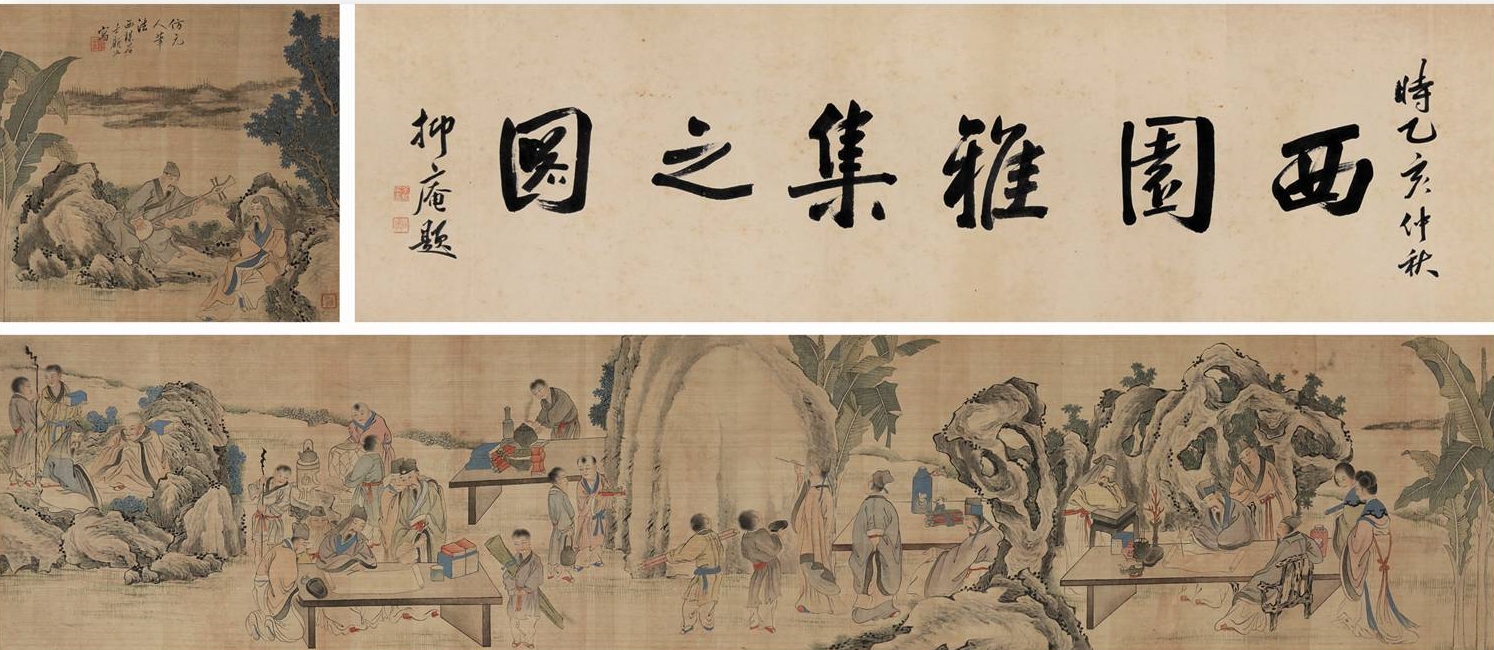 時乙亥仲秋
西園雅集之圖
抑庵題
仿元
人筆
法
寫